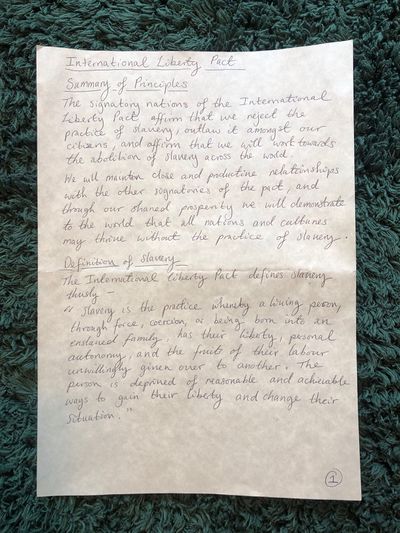 International Liberty Pact
Summary of Principles
The signatory nations of the International
Liberty Pact affirm that we reject the
practice of slavery, outlaw it amongst our
citizens, and affirm that we will work towards
the abolition of slavery across the world.
We will maintain close and productive relationships
with the other signatories of the pact, and
through our shared prosperity we will demonstrate
to the world that all nations and cultures
may thrive without the practice of slavery.
Definition of Slavery
The International Liberty Pact defines slavery
thusly –
"Slavery is the practice whereby a living person,
through force, coercion, or being born into an
enslaved family, has their liberty, personal
autonomy, and the fruit of their labour
unwillingly given over to another. The
person is deprived of reasonable and achievable
ways to gain their liberty and change their
situation."
1